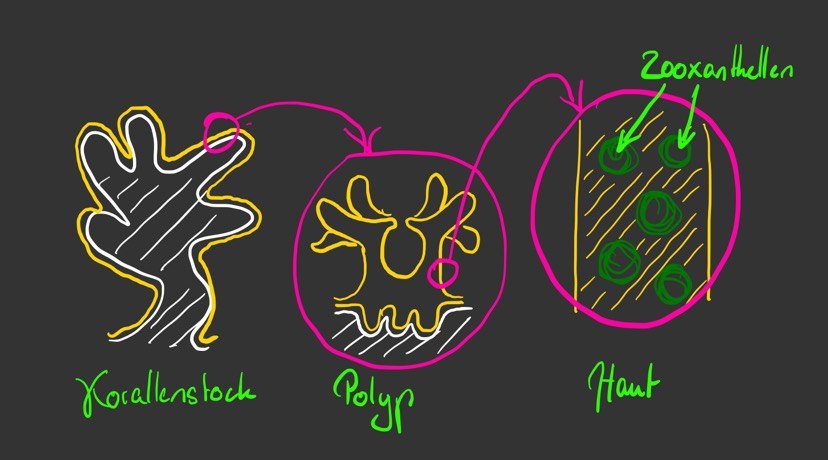 Zooxanthellen
Korallenstock
Polyp
Haut